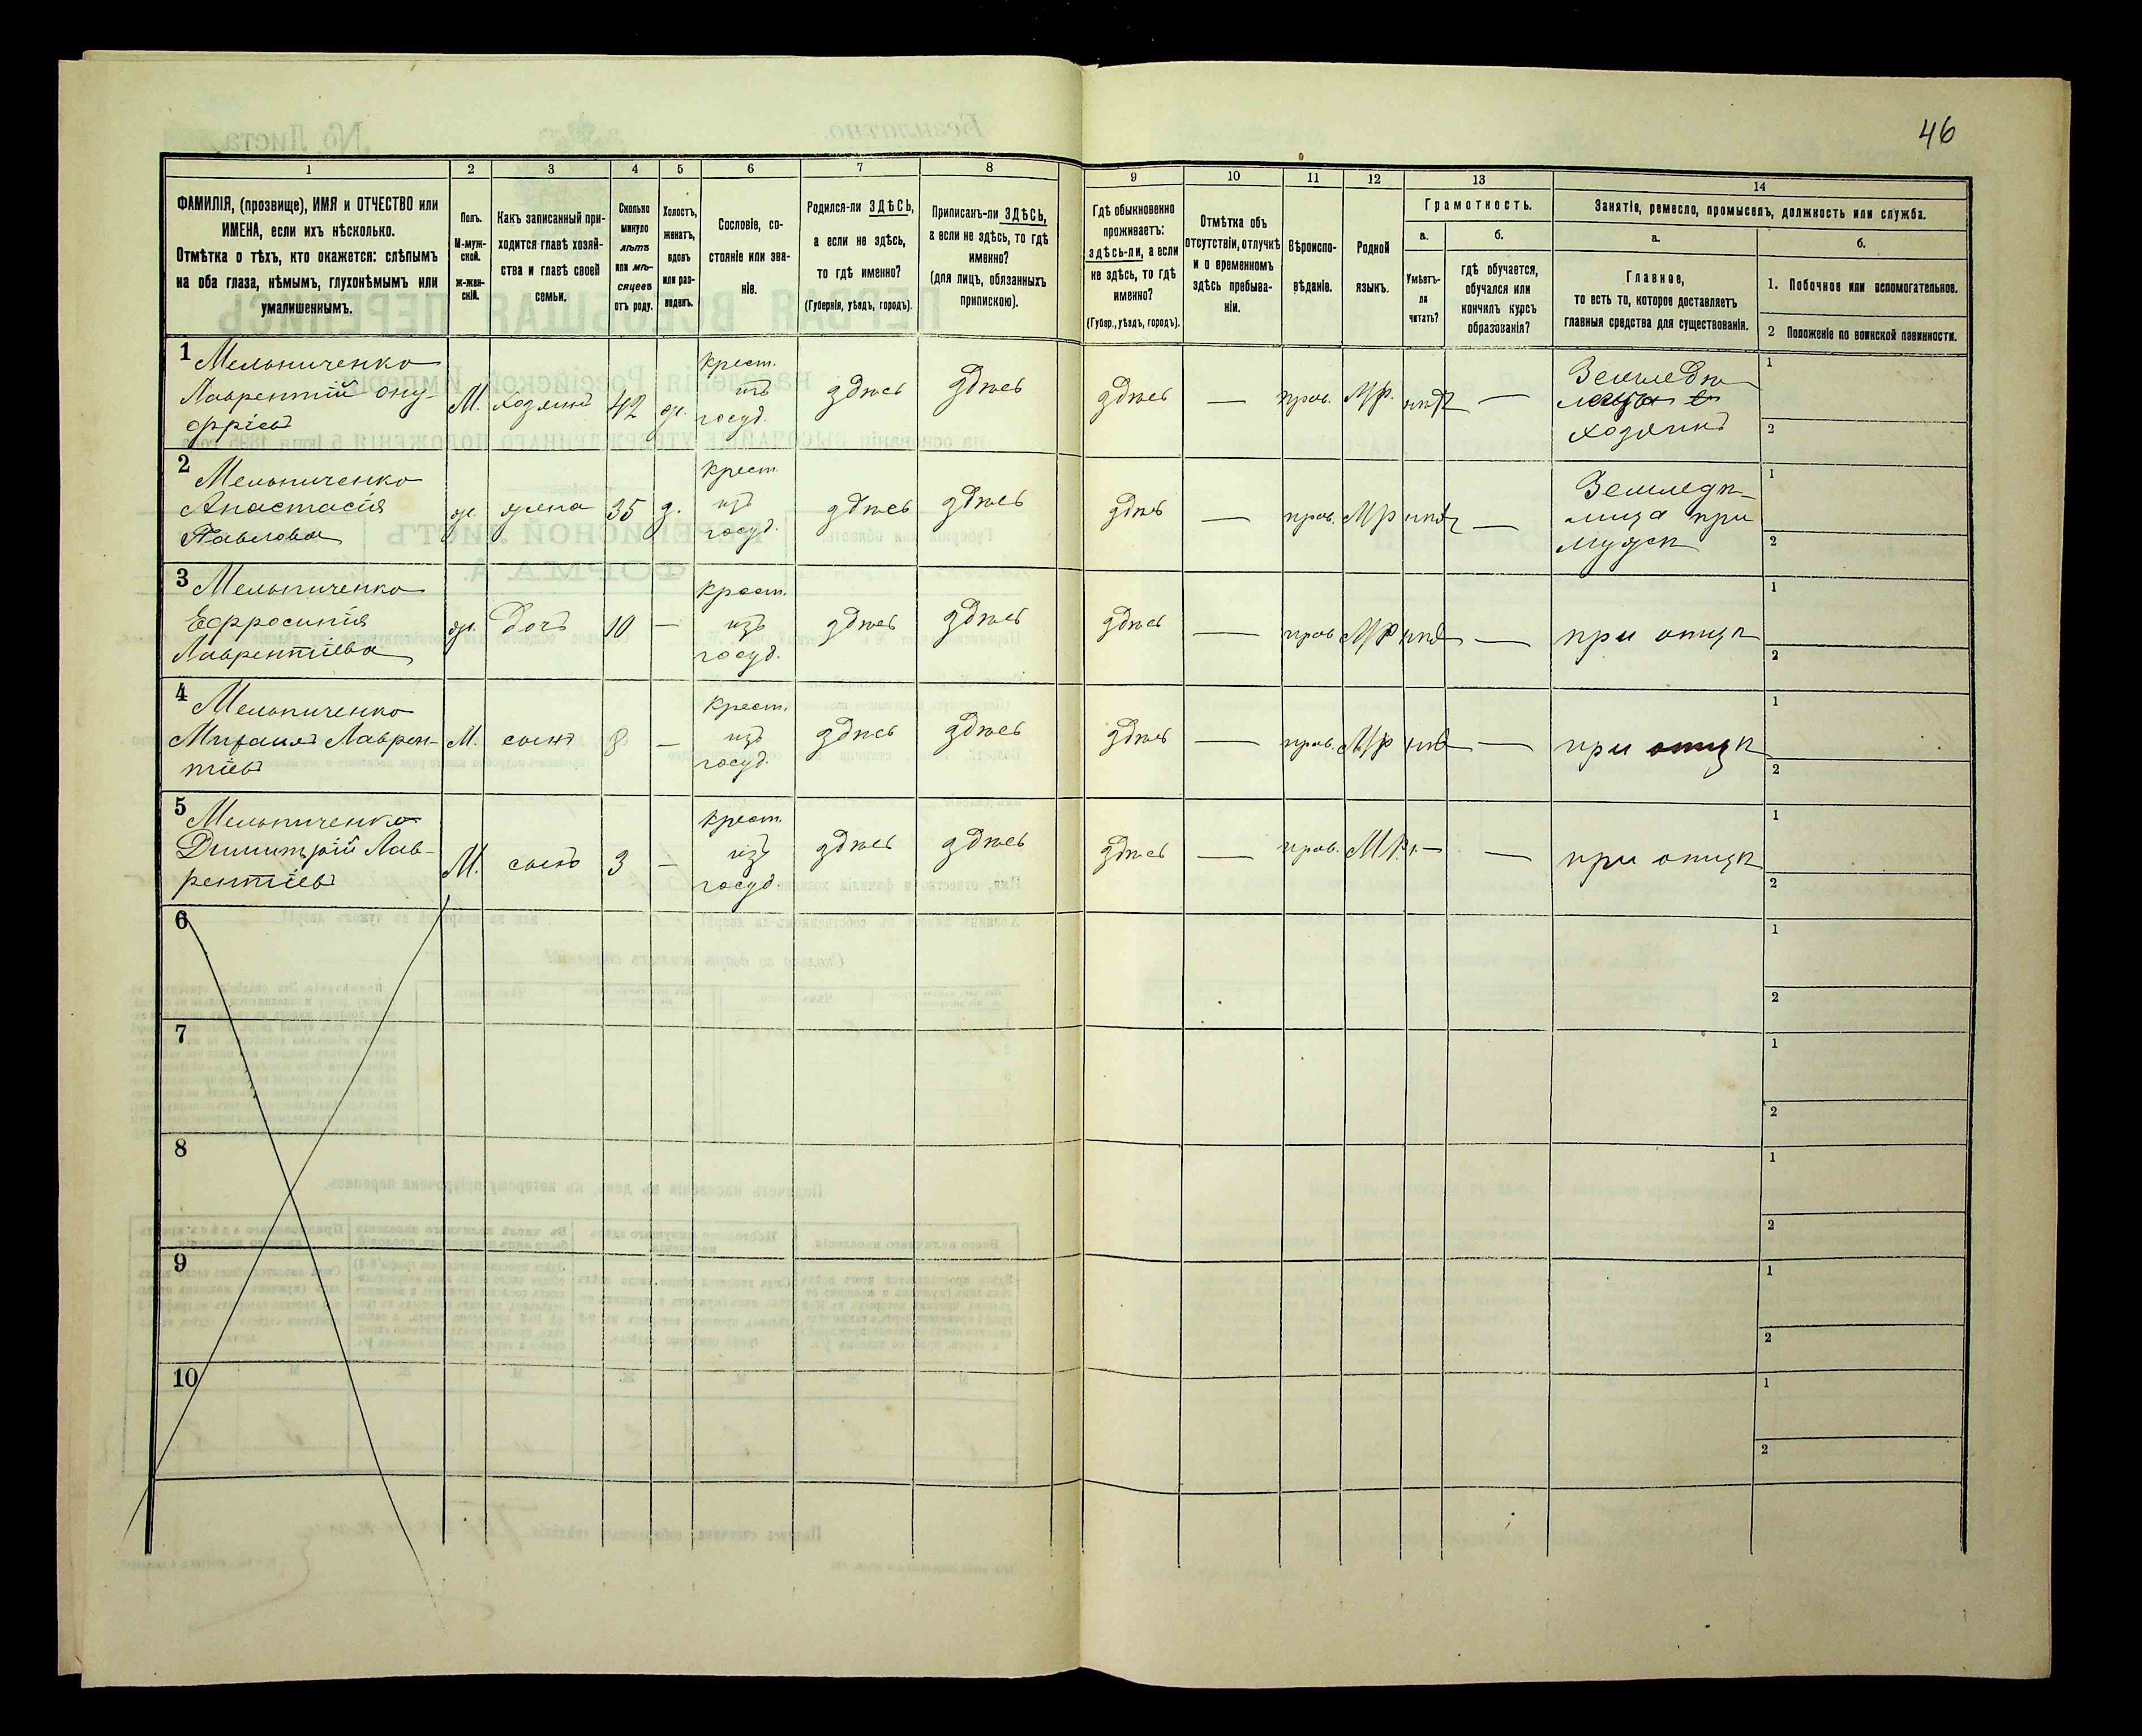 46
1
2
3
4
5
6
7
8
9
10
11
12
13
14
ФАМИЛІЯ, (прозвище), ИМЯ и ОТЧЕСТВО или
ИМЕНА, если ихъ нѣсколько.
Отмѣтка о тѣхъ, кто окажется: слѣпымъ
на оба глаза, нѣмымъ, глухонѣмымъ или
умалишеннымъ.
Полъ.
М-муж-
ской.
ж-жен-
скій.
Какъ записанный при-
ходится главѣ хозяй-
ства и главѣ своей
семьи.
Сколько
минуло
лѣтъ
или мѣ-
сяцевъ
отъ роду.
Холостъ,
женатъ,
вдовъ
или раз-
веденъ.
Сословіе, со-
стояніе или зва-
ніе.
Родился-ли ЗДѢСЬ,
а если не здѣсь,
то гдѣ именно?
(Губернія, уѣздъ, городъ).
Приписанъ-ли ЗДѢСЬ,
а если не здѣсь, то гдѣ
именно?
(для лицъ, обязанныхъ
припискою).
Гдѣ обыкновенно
проживаетъ:
здѣсь-ли, а если
не здѣсь, то гдѣ
именно?
(Губер., уѣздъ, городъ).
Отмѣтка объ
отсутствіи, отлучкѣ
и о временномъ
здѣсь пребыва-
ніи.
Вѣроиспо-
вѣданіе.
Родной
языкъ.
Грамотность.
а.
Умѣетъ-
ли
читать?
б.
гдѣ обучается,
обучался или
кончилъ курсъ
образованія?
Занятіе, ремесло, промыселъ, должность или служба.
а.
Главное,
то есть то, которое доставляетъ
главныя средства для существованія.
б.
1. Побочное или вспомогательное.
2 Положеніе по воинской повинности.
1 Мельниченко
Лаврентій Ону-
фріевъ
М.
хозяинъ
42
ж.
Крест.
изъ
госуд.
здѣсь
здѣсь
здѣсь
—
прав.
МР.
нѣтъ
—
Земледѣ-
хозяинъ
1
2
2 Мельниченко
Анастасія
Павлова
ж.
жена
35
з.
Крест.
изъ
госуд.
здѣсь
здѣсь
здѣсь
—
прав.
МР
нѣтъ
—
Земледѣ-
лица при
мужѣ
1
2
3 Мельниченко
Ефросинія
Лаврентіева
ж.
дочь
10
—
Крест.
изъ
госуд.
здѣсь
здѣсь
здѣсь
—
прав
МР
нѣтъ
—
при отцѣ
1
2
4 Мельниченко
Михаилъ Лаврен-
тіевъ
М.
сынъ
8
—
Крест.
изъ
госуд.
здѣсь
здѣсь
здѣсь
—
прав.
МР
нѣтъ
—
при отцѣ
1
2
5 Мельниченко
Димитрій Лав-
рентіевъ
М.
сынъ
3
—
Крест.
изъ
госуд
здѣсь
здѣсь
здѣсь
—
прав.
МР.
—
—
при отцѣ
1
2
6
1
2
7
1
2
8
1
2
9
1
2
10
1
2